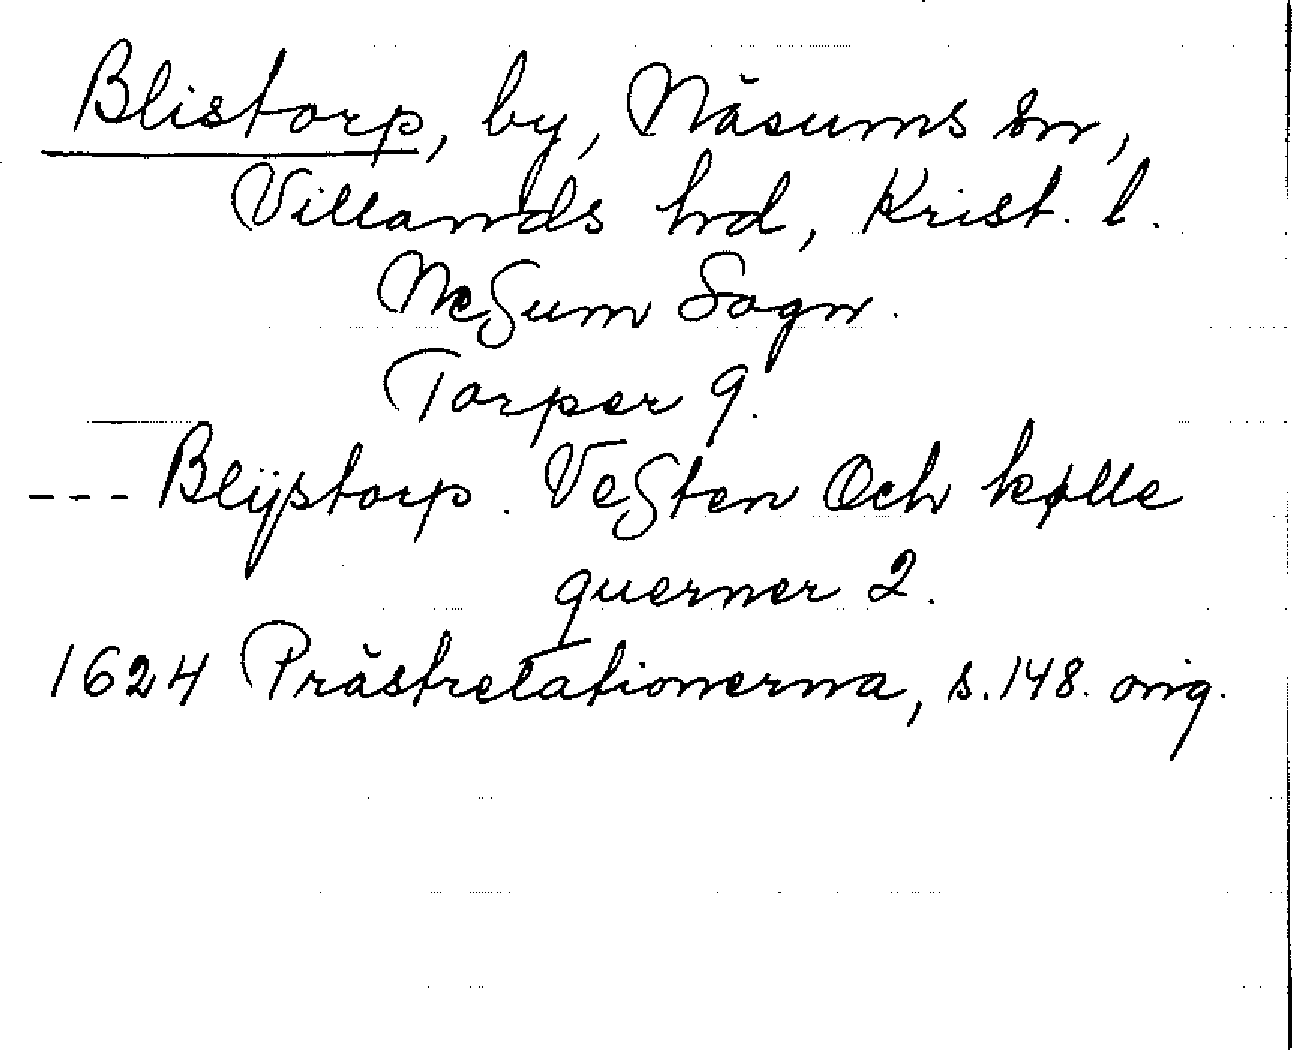 Blistorp, by, Näsums sn,
Villands hd, Krist. l.
Neſum Sogn.
Torper 9.
--- Blÿstorp. Veſten Och kølle
querner 2.
1624 Prästrelationerna, s.148. orig.